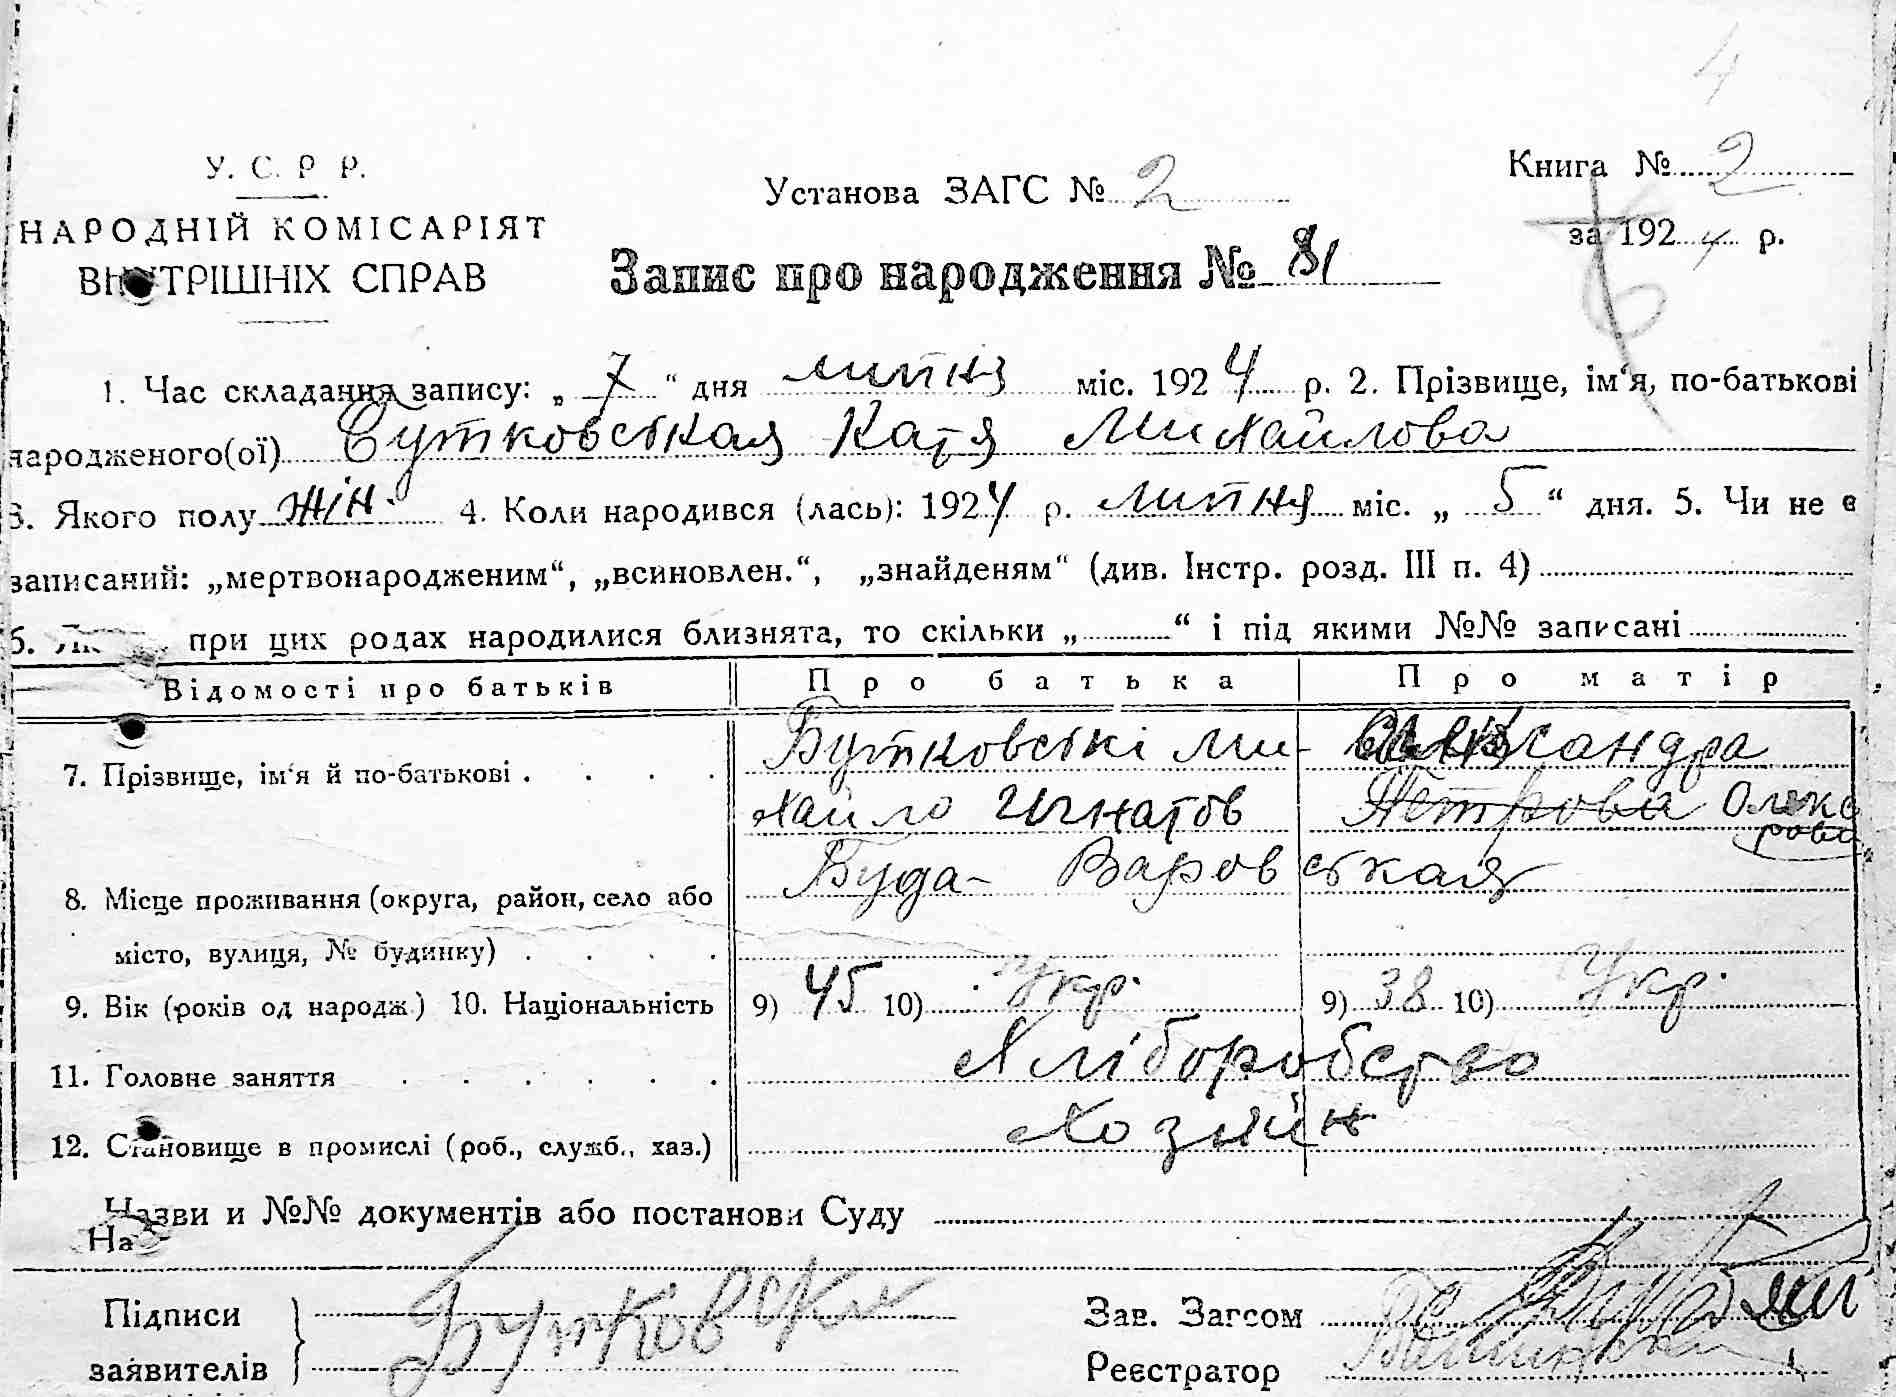 4
У. С. Р Р.
Установа ЗАГС № 2
Книга № 2
НАРОДНІЙ КОМІСАРІЯТ
за 1924 р.
ВНУТРІШНІХ СПРАВ
Запис про народження № 81
1. Час складання запису: „ 7 “ дня липня міс. 1924 р. 2. Прізвище, ім‘я, по-батькові
народженого(ої) Бутковськая Катя Михайлова
3. Якого полу жін. 4. Коли народився (лась): 1924 р. липня міс. „ 5 “ дня. 5. Чи не є
записаний: „мертвонародженим“, „всиновлен.“, „знайденям“ (див. Інстр. розд. III п. 4)
6. при цих родах народилися близнята, то скільки „ “ і під якими №№ записані
Відомості про батьків Про батька Про матір
7. Прізвище, ім‘я й по-батькові . . . . Бутковські Ми- Александра
хайло Игнатов Петрова Олекс
рова
8. Місце проживання (округа, район, село або Буда- Варовськая
місто, вулиця, № будинку) . . . .
9. Вік (років од народж.) 10. Національність 9) 45 10) Укр. 9) 38 10) Укр.
11. Головне заняття . . . . . . Хліборобство
12. Становище в промислі (роб., служб., хаз.) Хозяйн
Назви и №№ документів або постанови Суду
На
Підписи Бутковски
заявителів
Зав. Загсом
Реєстратор